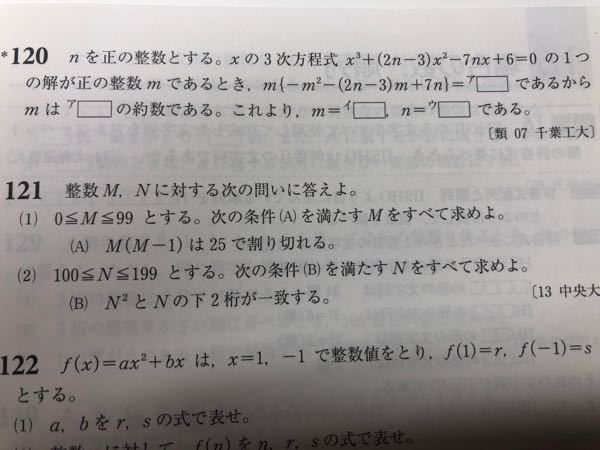 *120 nを正の整数とする。xの3次方程式 x³+(2n-3)x²-7nx+6=0 の1つ
の解が正の整数 m であるとき，m{-m²-(2n-3)m+7n}=ア□ であるから
m は ア□ の約数である。これより，m=イ□，n=ウ□ である。
〔類 07 千葉工大〕
121 整数 M，N に対する次の問いに答えよ。
(1) 0≦M≦99 とする。次の条件(A)を満たす M をすべて求めよ。
(A) M(M-1) は 25 で割り切れる。
(2) 100≦N≦199 とする。次の条件(B)を満たす N をすべて求めよ。
(B) N² と N の下 2 桁が一致する。
〔13 中央大
122 f(x)=ax²+bx は，x=1，-1 で整数値をとり，f(1)=r，f(-1)=s
とする。
(1) a，b を r，s の式で表せ。
f(n) を n，r，s の式